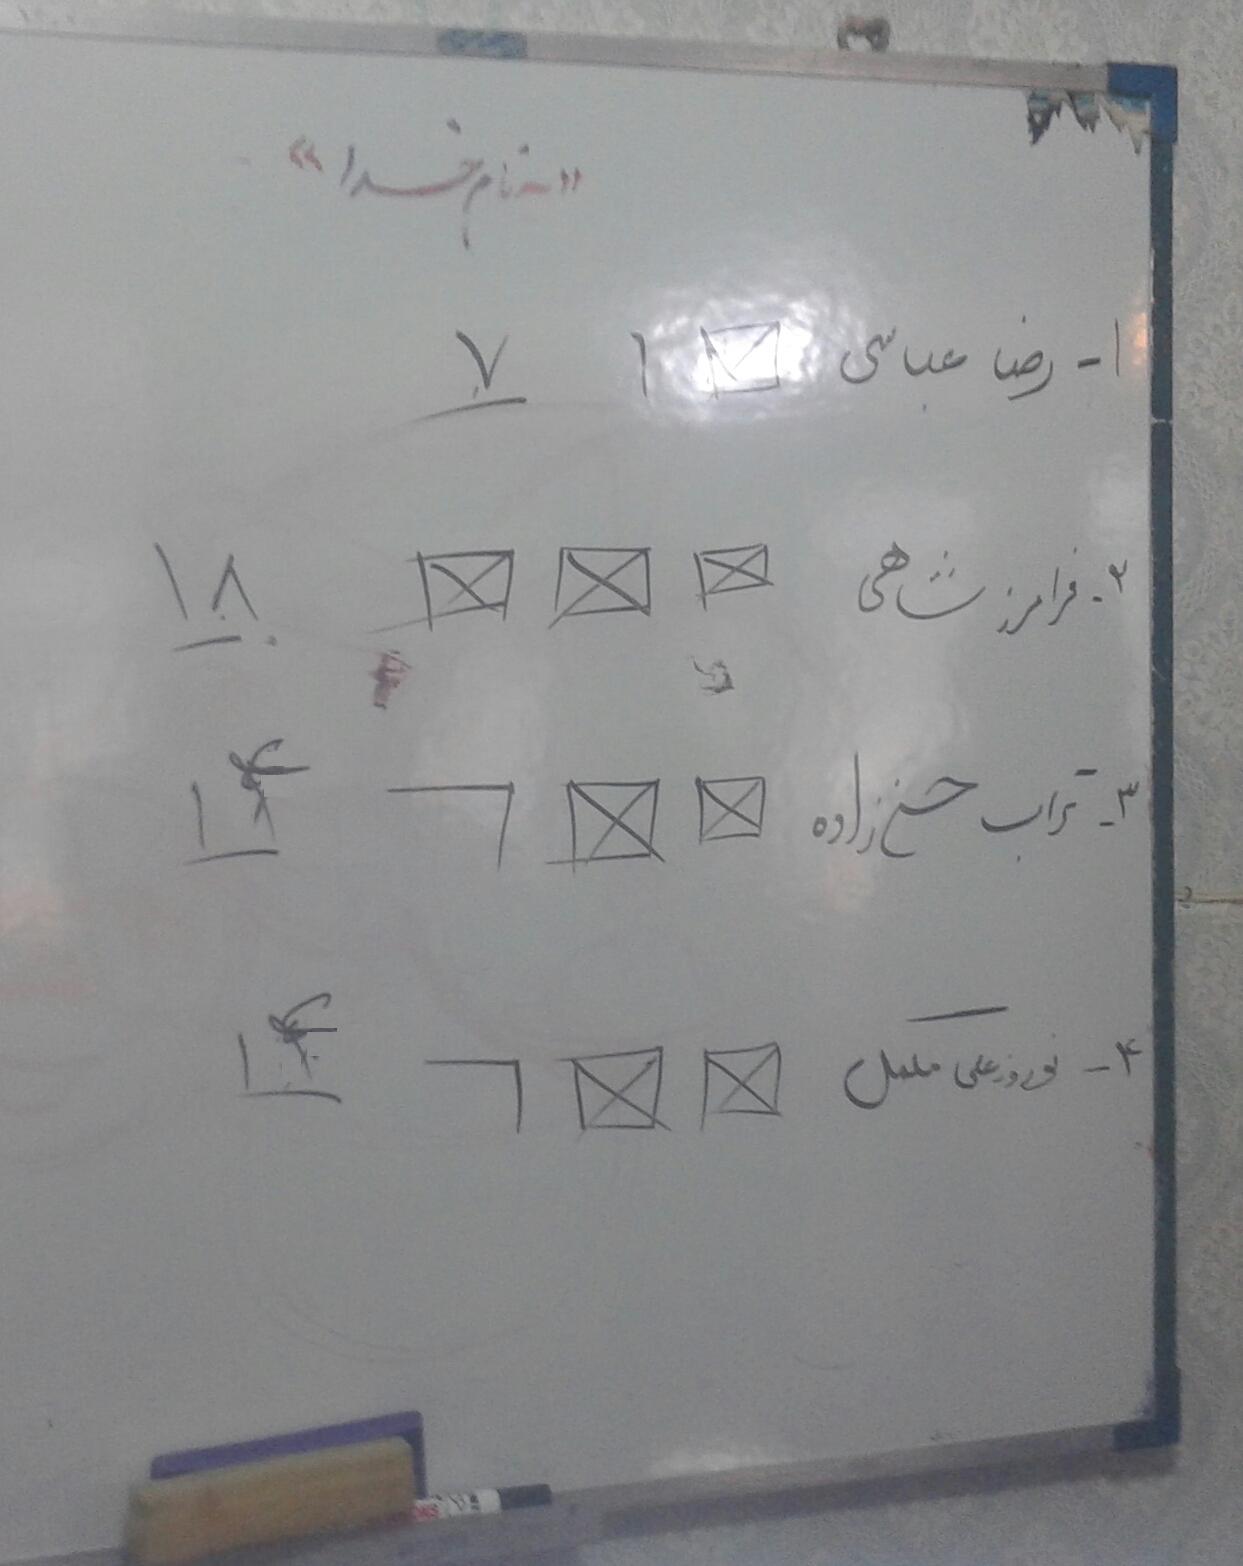 «به نام خدا»
۱- رضا عباسی ۱ ۷
۲- فرامرز شاهی ۱۸
۳- تراب زاده ۱۴
۴- نوروز علی ۱۴